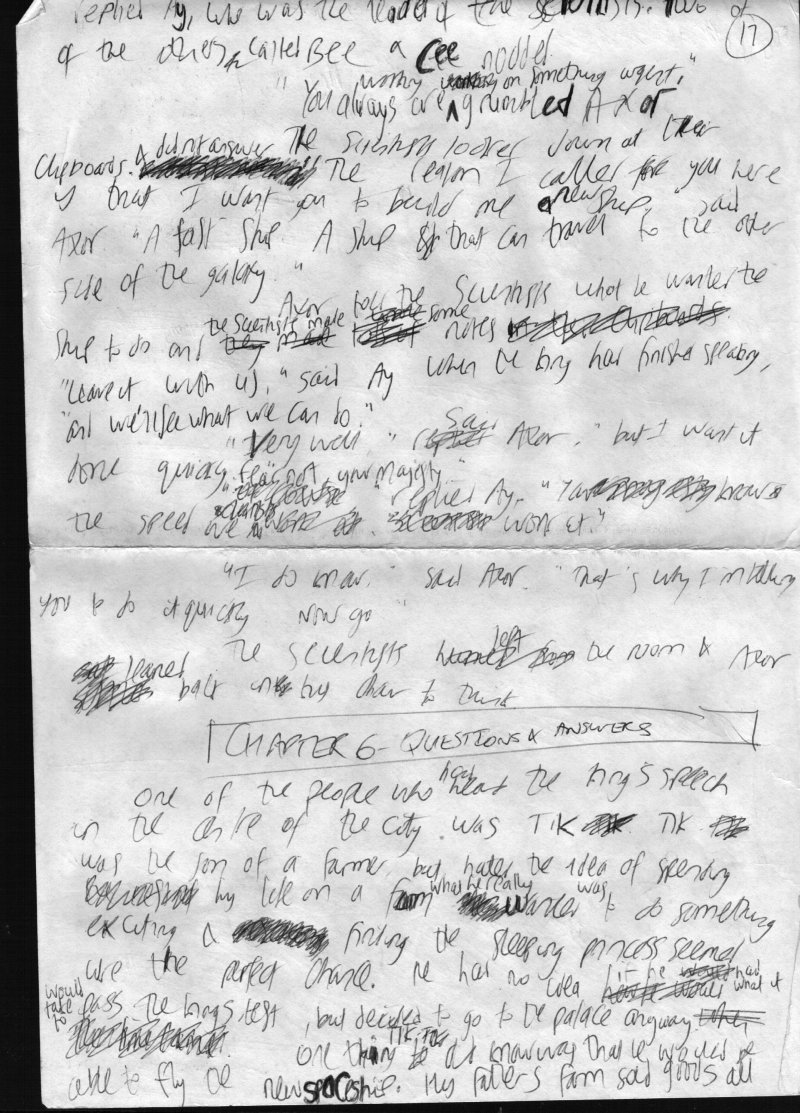 replied Ay, who was the leader of the scientists. Two of
17
of the others, called Bee & Cee nodded
working on something urgent,"
"You always are grumbled Axor
did not answer The scientists looked down at their
Clipboards. & "The reason I called you here
is that I want you to build me a new ship, said
Axor. "A fast ship. A ship that can travel to the other
side of the galaxy."
Axor told the Scientists what he wanted the
ship to do and the Scientists made some notes
"Leave it with us," said Ay when the king had finished speaking,
"and we'll see what we can do."
"Very well" said Axor, "but I want it
done quickly
"fear not, your majesty" replied Ay. "You know
the speed we work at."
"I do know," said Axor. "That's why I'm telling
you to do it quickly Now go"
The scientists left the room & Axor
leaned back in his chair to think
CHAPTER 6 - QUESTIONS & ANSWERS
One of the people who had heard the king's speech
in the centre of the city was TIK TIK
was the son of a farmer, but hated the idea of spending
his life on a farm what he really wanted was to do something
exciting & finding the sleeping princess seemed
like the perfect chance. He had no idea if he had what it
would take to pass the king's test, but decided to go to the palace anyway.
One thing Tik did know was that he would be
able to fly the new spaceship. His father's farm sold goods all